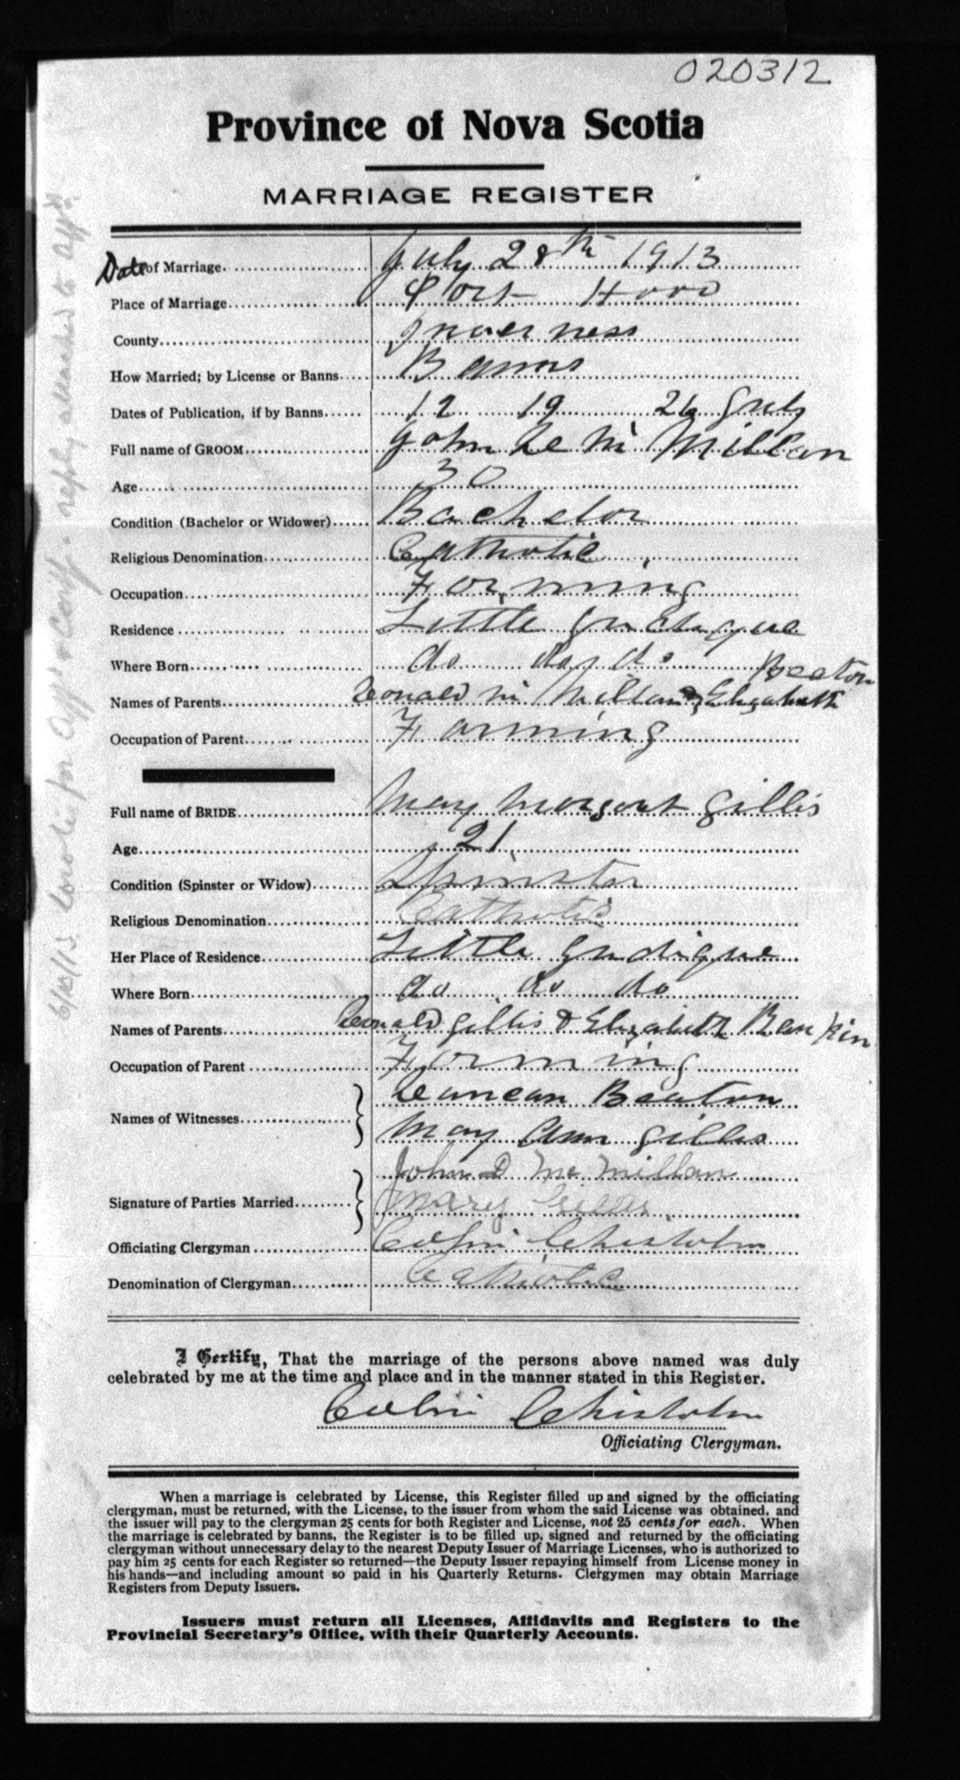 020312
Province of Nova Scotia
MARRIAGE REGISTER
Date of Marriage July 28th 1913
Place of Marriage Port Hood
County Inverness
How Married; by License or Banns Banns
Dates of Publication, if by Banns 12 19 26 July
Full name of GROOM John D Mc Millan
Age 30
Condition (Bachelor or Widower) Bachelor
Religious Denomination Catholic
Occupation Farming
Residence Little Judique
Where Born do do do
Names of Parents Donald Mc Millan & Elizabeth Beaton
Occupation of Parent Farming
Full name of BRIDE Mary Margaret Gillis
Age 21
Condition (Spinster or Widow) Spinster
Religious Denomination Catholic
Her Place of Residence Little Judique
Where Born do do do
Names of Parents Donald Gillis & Elizabeth Rankin
Occupation of Parent Farming
Names of Witnesses Duncan Beaton
Mary Ann Gillis
Signature of Parties Married John D Mc Millan
Mary Gillis
Officiating Clergyman Colin Chisholm
Denomination of Clergyman Catholic
I Certify, That the marriage of the persons above named was duly
celebrated by me at the time and place and in the manner stated in this Register.
Colin Chisholm
Officiating Clergyman.
When a marriage is celebrated by License, this Register filled up and signed by the officiating
clergyman, must be returned, with the License, to the issuer from whom the said License was obtained, and
the issuer will pay to the clergyman 25 cents for both Register and License, not 25 cents for each. When
the marriage is celebrated by banns, the Register is to be filled up, signed and returned by the officiating
clergyman without unnecessary delay to the nearest Deputy Issuer of Marriage Licenses, who is authorized to
pay him 25 cents for each Register so returned—the Deputy Issuer repaying himself from License money in
his hands—and including amount so paid in his Quarterly Returns. Clergymen may obtain Marriage
Registers from Deputy Issuers.
Issuers must return all Licenses, Affidavits and Registers to the
Provincial Secretary's Office, with their Quarterly Accounts.
6/10/13 wrote for reply attached to